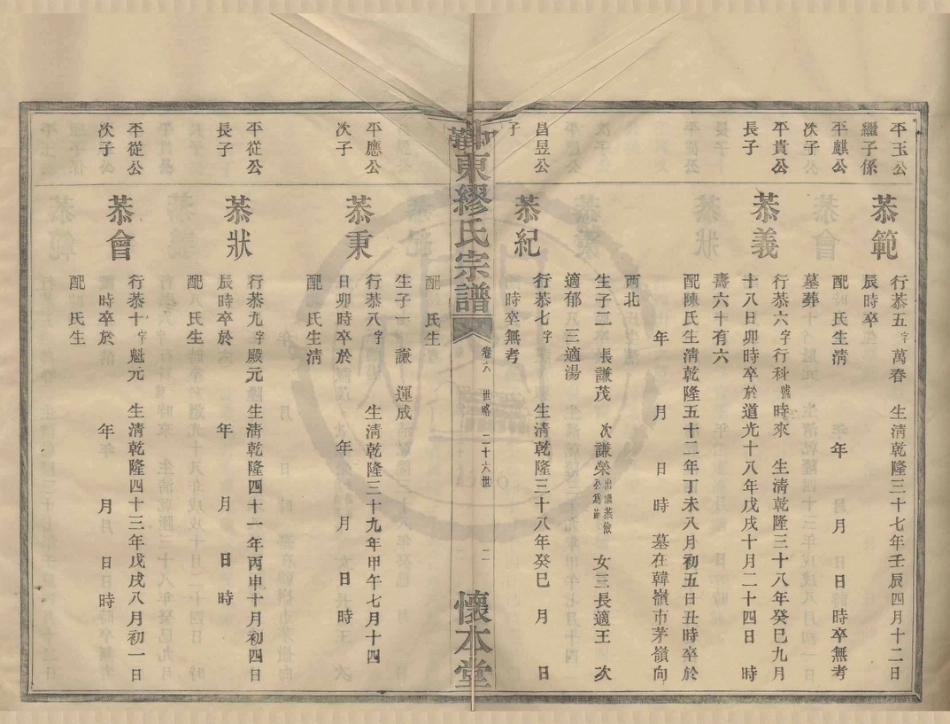 平玉公
繼子係
平麒公
次子
平貴公
長子
昌昱公
子
恭範
行恭五字萬春 生清乾隆三十七年壬辰四月十二日
辰時卒
配 氏生清 年 月 日 時卒無考
墓葬
恭義
行恭六字行科號時來 生清乾隆三十八年癸巳九月
十八日卯時卒於道光十八年戊戌十月二十四日 時
壽六十有六
配陳氏生清乾隆五十二年丁未八月初五日丑時卒於
年 月 日 時 墓在韓嶺市茅嶺向
西北
生子二 長謙茂 次謙榮 女三長適王 次
適郁 三適湯
恭紀
行恭七字 生清乾隆三十八年癸巳 月 日
時卒無考
東繆氏宗譜
卷六 世略 二十六世
懷本堂
平應公
次子
平從公
長子
平從公
次子
配 氏生
生子一 謙 運成
恭秉
行恭八字 生清乾隆三十九年甲午七月十四
日卯時卒於 年 月 日 時
配 氏生清
恭狀
行恭九字殿元 生清乾隆四十一年丙申十月初四日
辰時卒於 年 月 日 時
配 氏生
恭會
行恭十字魁元 生清乾隆四十三年戊戌八月初一日
時卒於 年 月 日 時
配 氏生